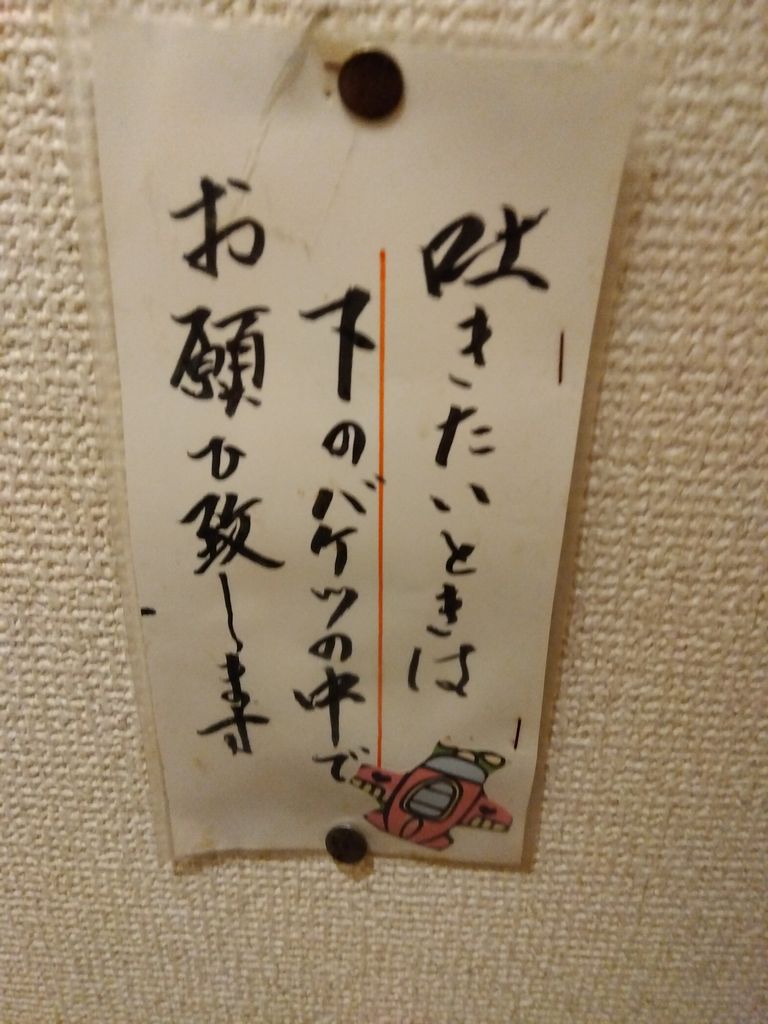 吐きたいときは
下のバケツの中で
お願ひ致します